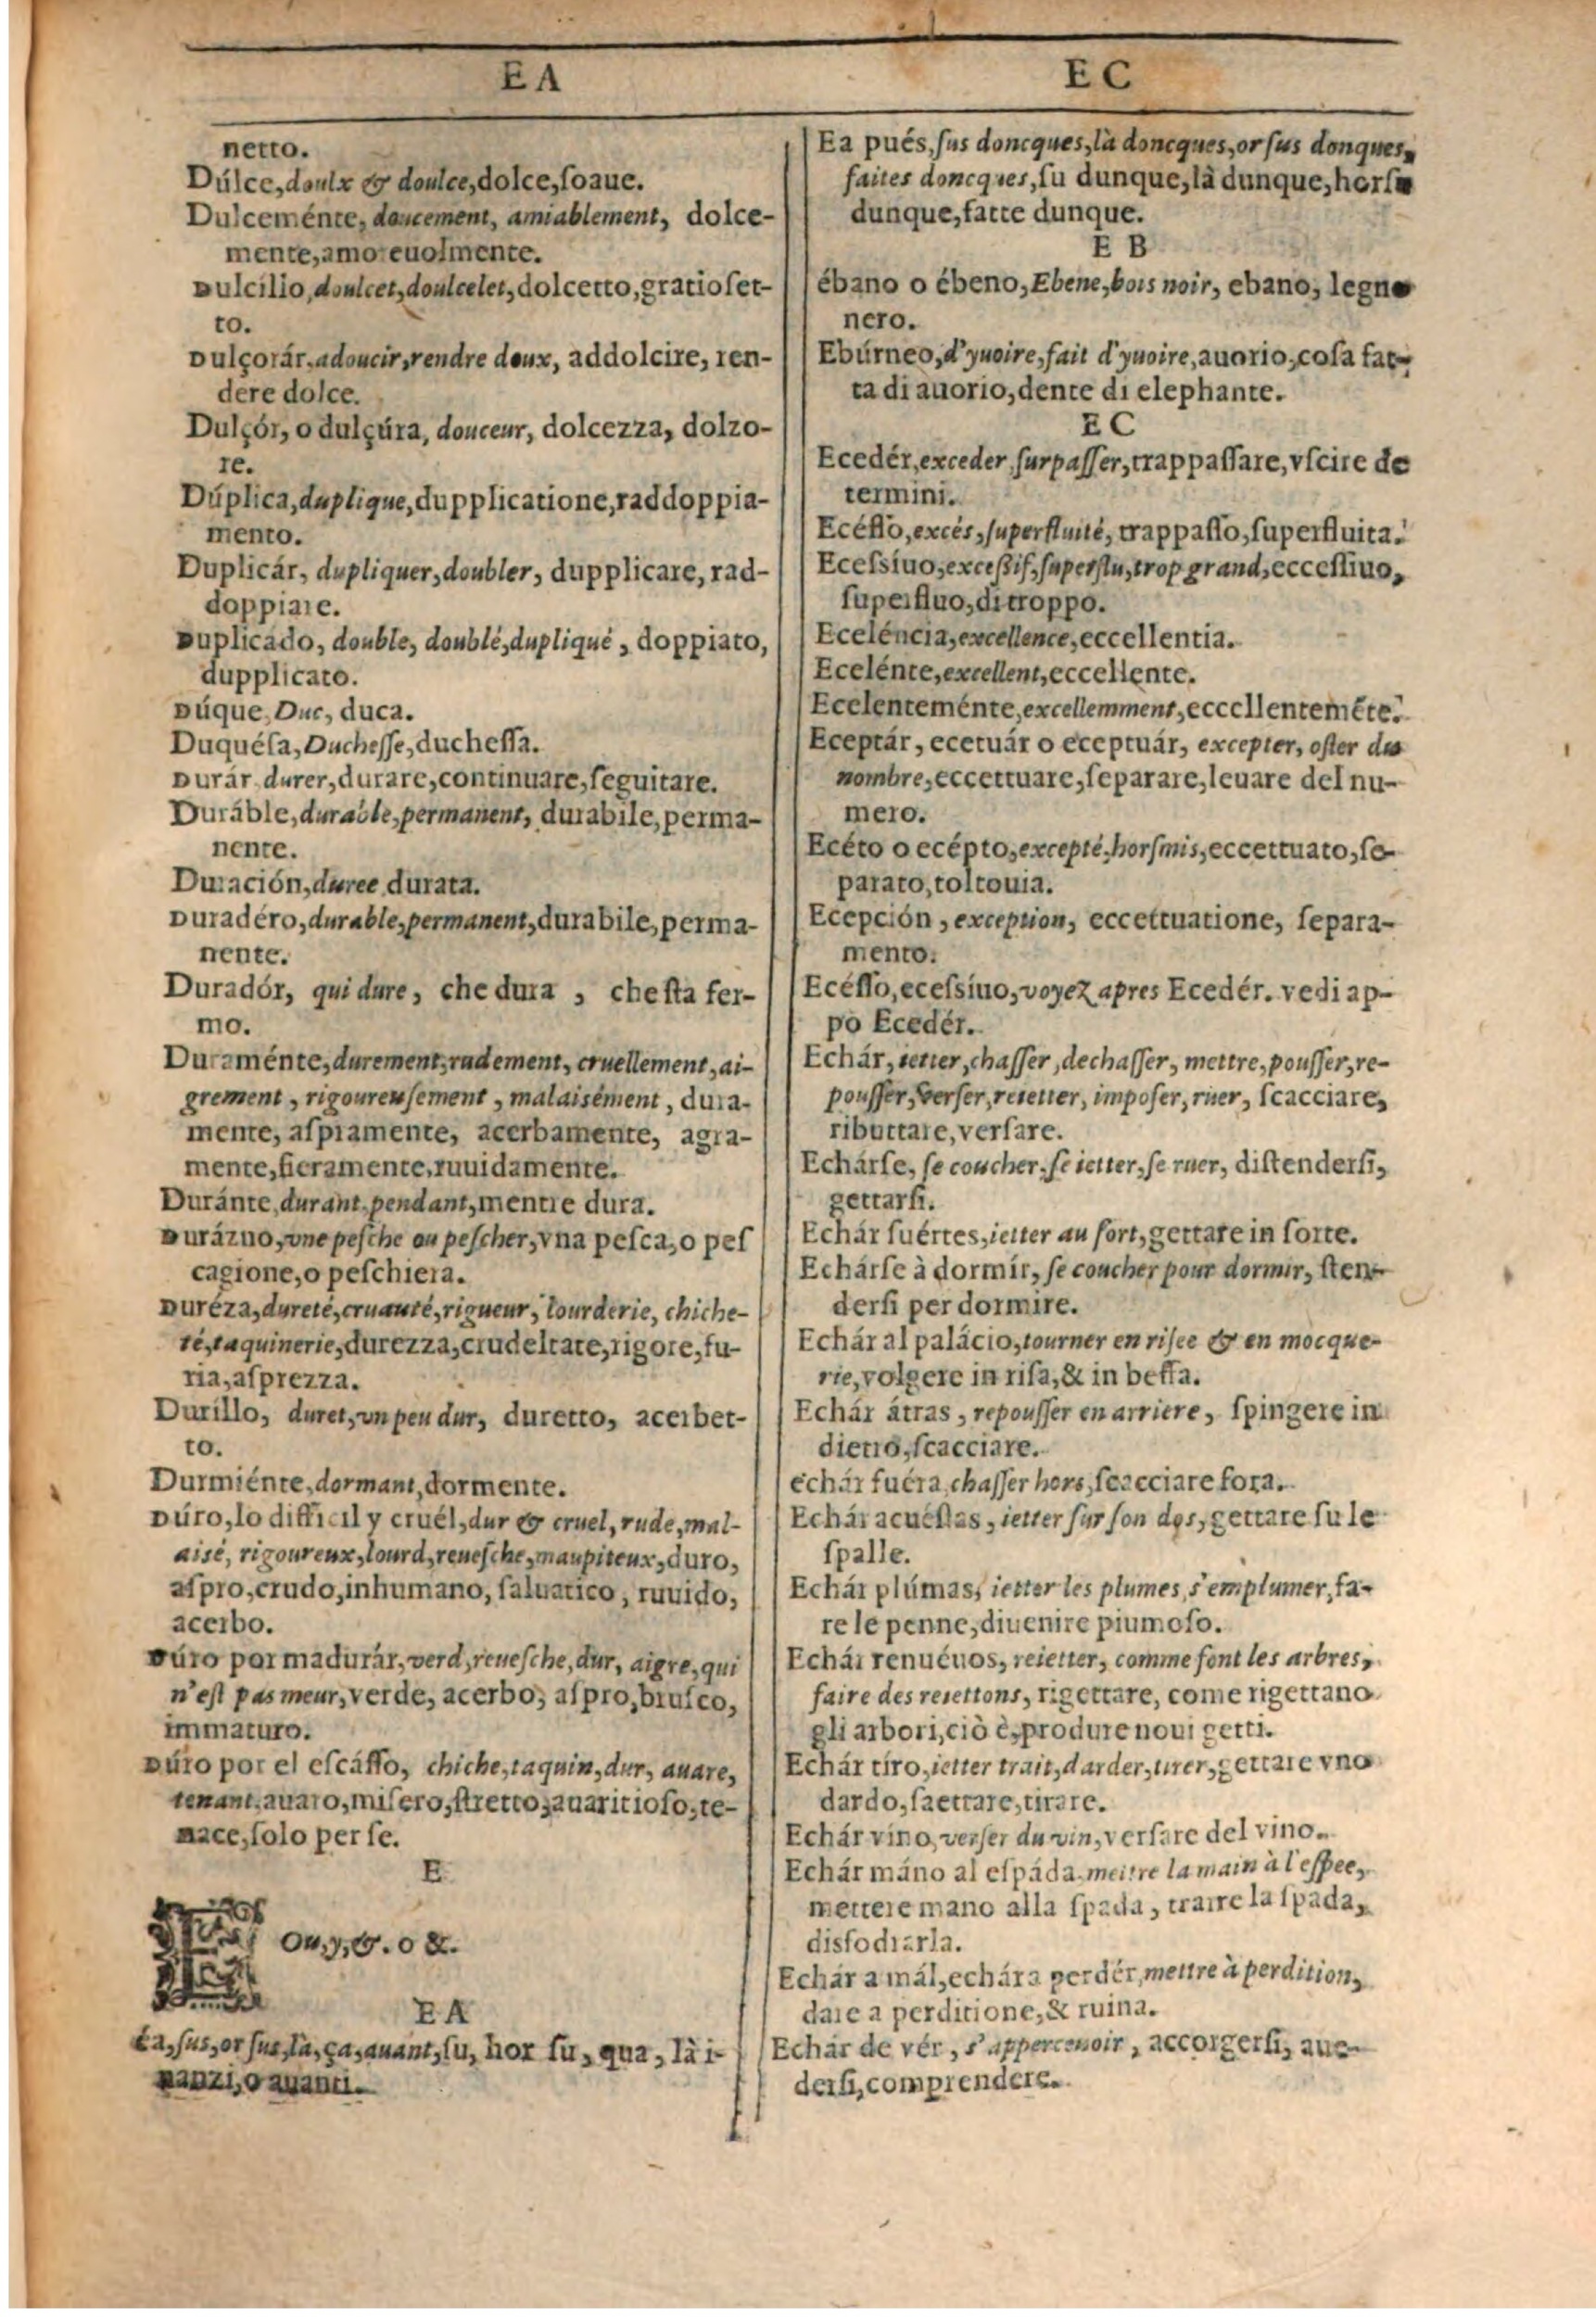 EA
EC
netto.
Dúlce, doulx & doulce, dolce, ſoaue.
Dulceménte, doucement, amiablement, dolce-
mente, amoreuolmente.
Dulcíllo, doulcet, doulcelet, dolcetto, gratioſet-
to.
Dulçorár, adoucir, rendre doux, addolcire, ren-
dere dolce.
Dulçór, o dulçúra, douceur, dolcezza, dolzo-
re.
Dúplica, duplique, dupplicatione, raddoppia-
mento.
Duplicár, dupliquer, doubler, dupplicare, rad-
doppiare.
Duplicádo, double, doublé, dupliqué, doppiato,
dupplicato.
Dúque, Duc, duca.
Duquéſa, Ducheſſe, ducheſſa.
Durár durer, durare, continuare, ſeguitare.
Duráble, durable, permanent, durabile, perma-
nente.
Duración, duree durata.
Duradéro, durable, permanent, durabile, perma-
nente.
Duradór, qui dure, che dura, che ſta fer-
mo.
Duraménte, durement, rudement, cruellement, ai-
grement, rigoureuſement, malaisément, dura-
mente, aſpramente, acerbamente, agra-
mente, fieramente, ruuidamente.
Duránte, durant pendant, mentre dura.
Durázno, vne peſche ou peſcher, vna peſca, o peſ
cagione, o peſchiera.
Duréza, dureté, cruauté, rigueur, lourderie, chiche-
té, taquinerie, durezza, crudeltate, rigore, fu-
ria, aſprezza.
Durillo, duret, vn peu dur, duretto, acerbet-
to.
Durmiénte, dormant, dormente.
Dúro, lo difficil y cruél, dur & cruel, rude, mal-
aisé, rigoureux, lourd, reueſche, maupiteux, duro,
aſpro, crudo, inhumano, ſaluatico, ruuido,
acerbo.
Dúro por madurár, verd, reueſche, dur, aigre, qui
n'eſt pas meur, verde, acerbo, aſpro, bruſco,
immaturo.
Dúro por el eſcáſſo, chiche, taquin, dur, auare,
tenant, auaro, miſero, ſtretto, auaritioſo, te-
nace, ſolo per ſe.
E
E ou, y, &. o &.
EA
Ea, ſus, or ſus, là, ça, auant, ſu, hor ſu, qua, là i-
nanzi, o auanti.
Ea pués, ſus doncques, là doncques, or ſus donques,
faites doncques, ſu dunque, là dunque, horſu
dunque, fatte dunque.
E B
ébano o ébeno, Ebene, bois noir, ebano, legno
nero.
Ebúrneo, d'yuoire, fait d'yuoire, auorio, coſa fat-
ta di auorio, dente di elephante.
EC
Ecedér, exceder ſurpaſſer, trappaſſare, vſcire de
termini.
Ecéſſo, excés, ſuperfluité, trappaſſo, ſuperfluita.
Eceſsíuo, exceſſif, ſuperflu, trop grand, ecceſſiuo,
ſuperfluo, di troppo.
Eceléncia, excellence, eccellentia.
Ecelénte, excellent, eccellente.
Ecelenteménte, excellemment, eccellentemẽte.
Eceptár, ecetuár o eceptuár, excepter, oſter du
nombre, eccettuare, ſeparare, leuare del nu-
mero.
Ecéto o ecépto, excepté, horſmis, eccettuato, ſe-
parato, toltouia.
Ecepción, exception, eccettuatione, ſepara-
mento.
Ecéſſo, eceſsíuo, voyez apres Ecedér. vedi ap-
po Ecedér.
Echár, ietter, chaſſer, dechaſſer, mettre, pouſſer, re-
pouſſer, verſer, reietter, impoſer, ruer, ſcacciare,
ributtare, verſare.
Echárſe, ſe coucher, ſe ietter, ſe ruer, diſtenderſi,
gettarſi.
Echár ſuértes, ietter au ſort, gettare in ſorte.
Echárſe à dormír, ſe coucher pour dormir, ſten-
derſi per dormire.
Echár al palácio, tourner en riſee & en mocque-
rie, volgere in riſa, & in beffa.
Echár átras, repouſſer en arriere, ſpingere in
dietro, ſcacciare.
échár fuéra, chaſſer hors, ſcacciare fora.
Echár acuéſtas, ietter ſur ſon dos, gettare ſu le
ſpalle.
Echár plúmas, ietter les plumes, s'emplumer, fa-
re le penne, diuenire piumoſo.
Echár renuéuos, reietter, comme font les arbres,
faire des reiettons, rigettare, come rigettano
gli arbori, ciò è, produre noui getti.
Echár tíro, ietter trait, darder, tirer, gettare vno
dardo, ſaettare, tirare.
Echár víno, verſer du vin, verſare del vino.
Echár máno al eſpáda, mettre la main à l'eſpee,
mettere mano alla ſpada, trarre la ſpada,
disfodrarla.
Echár a mál, echár a perdér, mettre à perdition,
dare a perditione, & ruina.
Echár de vér, s'apperceuoir, accorgerſi, aue-
derſi, comprendere.